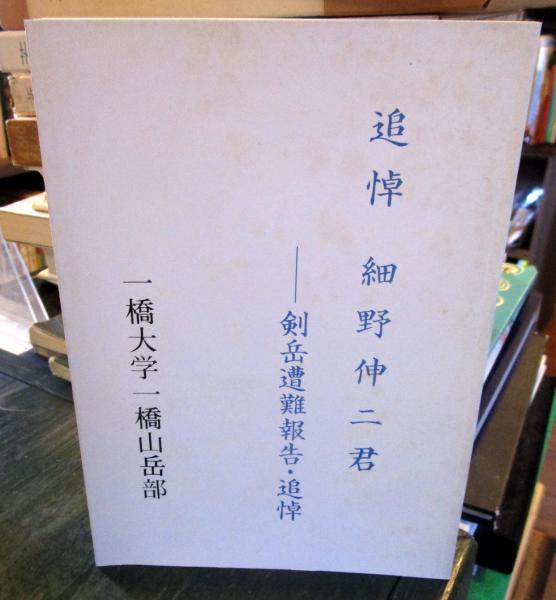 追悼 細野伸二君
──剣岳遭難報告・追悼
一橋大学一橋山岳部